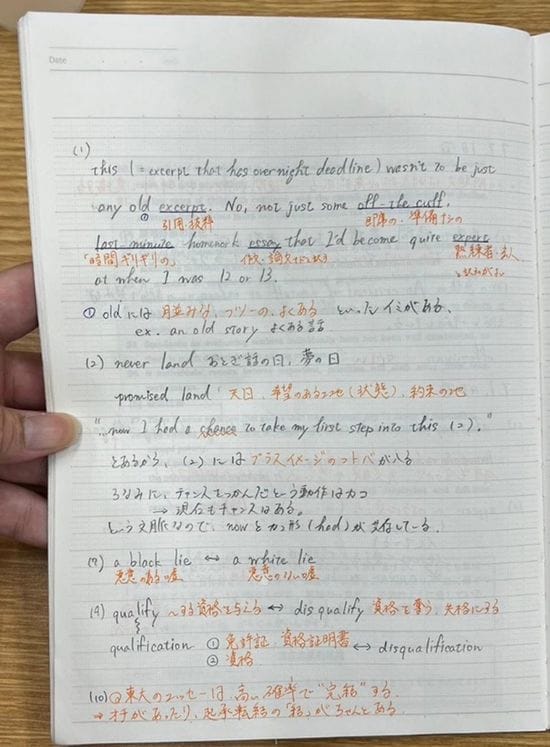 Date
(1)
this (= excerpt that has overnight deadline) wasn't to be just
any old excerpt. No, not just some off-the cuff,
① 引用・抜粋 即席の、準備なしの
last-minute homework essay that I'd become quite expert
「時間ギリギリの」 作文・論文 熟練者・玄人
at when I was 12 or 13.
① old には 月並みな、フツーの、よくある といったイミがある。
ex. an old story よくある話
(2) never land おとぎ話の国、夢の国
promised land 天国、希望のある地(状態)、約束の地
"...now I had a chance to take my first step into this (2)."
とあるから、(2)にはプラスイメージのコトバが入る
ちなみに、チャンスをつかんだという動作はカコ
→ 現在もチャンスはある。
という文脈なので、nowとカコ形(had)が共存している。
(7) a black lie ↔ a white lie
悪意のある嘘 悪意のない嘘
(9) qualify ~する資格を与える ↔ disqualify 資格を奪う、失格にする
qualification ① 免許証、資格証明書 ↔ disqualification
② 資格
(10) 東大のエッセーは、高い確率で"完結"する。
→ オチがあったり、起承転結の「結」がちゃんとある。